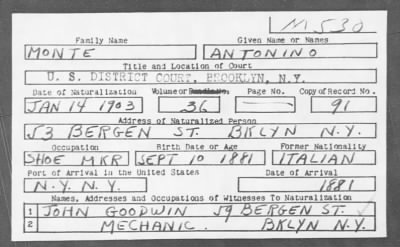 M530
Family Name Given Name or Names
MONTE ANTONINO
Title and Location of Court
U. S. DISTRICT COURT, BROOKLYN, N.Y.
Date of Naturalization Volume or Page No. Copy of Record No.
JAN 14 1903 36 — 91
Address of Naturalized Person
53 BERGEN ST. BKLYN N.Y.
Occupation Birth Date or Age Former Nationality
SHOE MKR SEPT 10 1881 ITALIAN
Port of Arrival in the United States Date of Arrival
N.Y. N.Y. 1881
Names, Addresses and Occupations of Witnesses To Naturalization
1 JOHN GOODWIN 59 BERGEN ST.
2 MECHANIC. BKLYN N.Y.